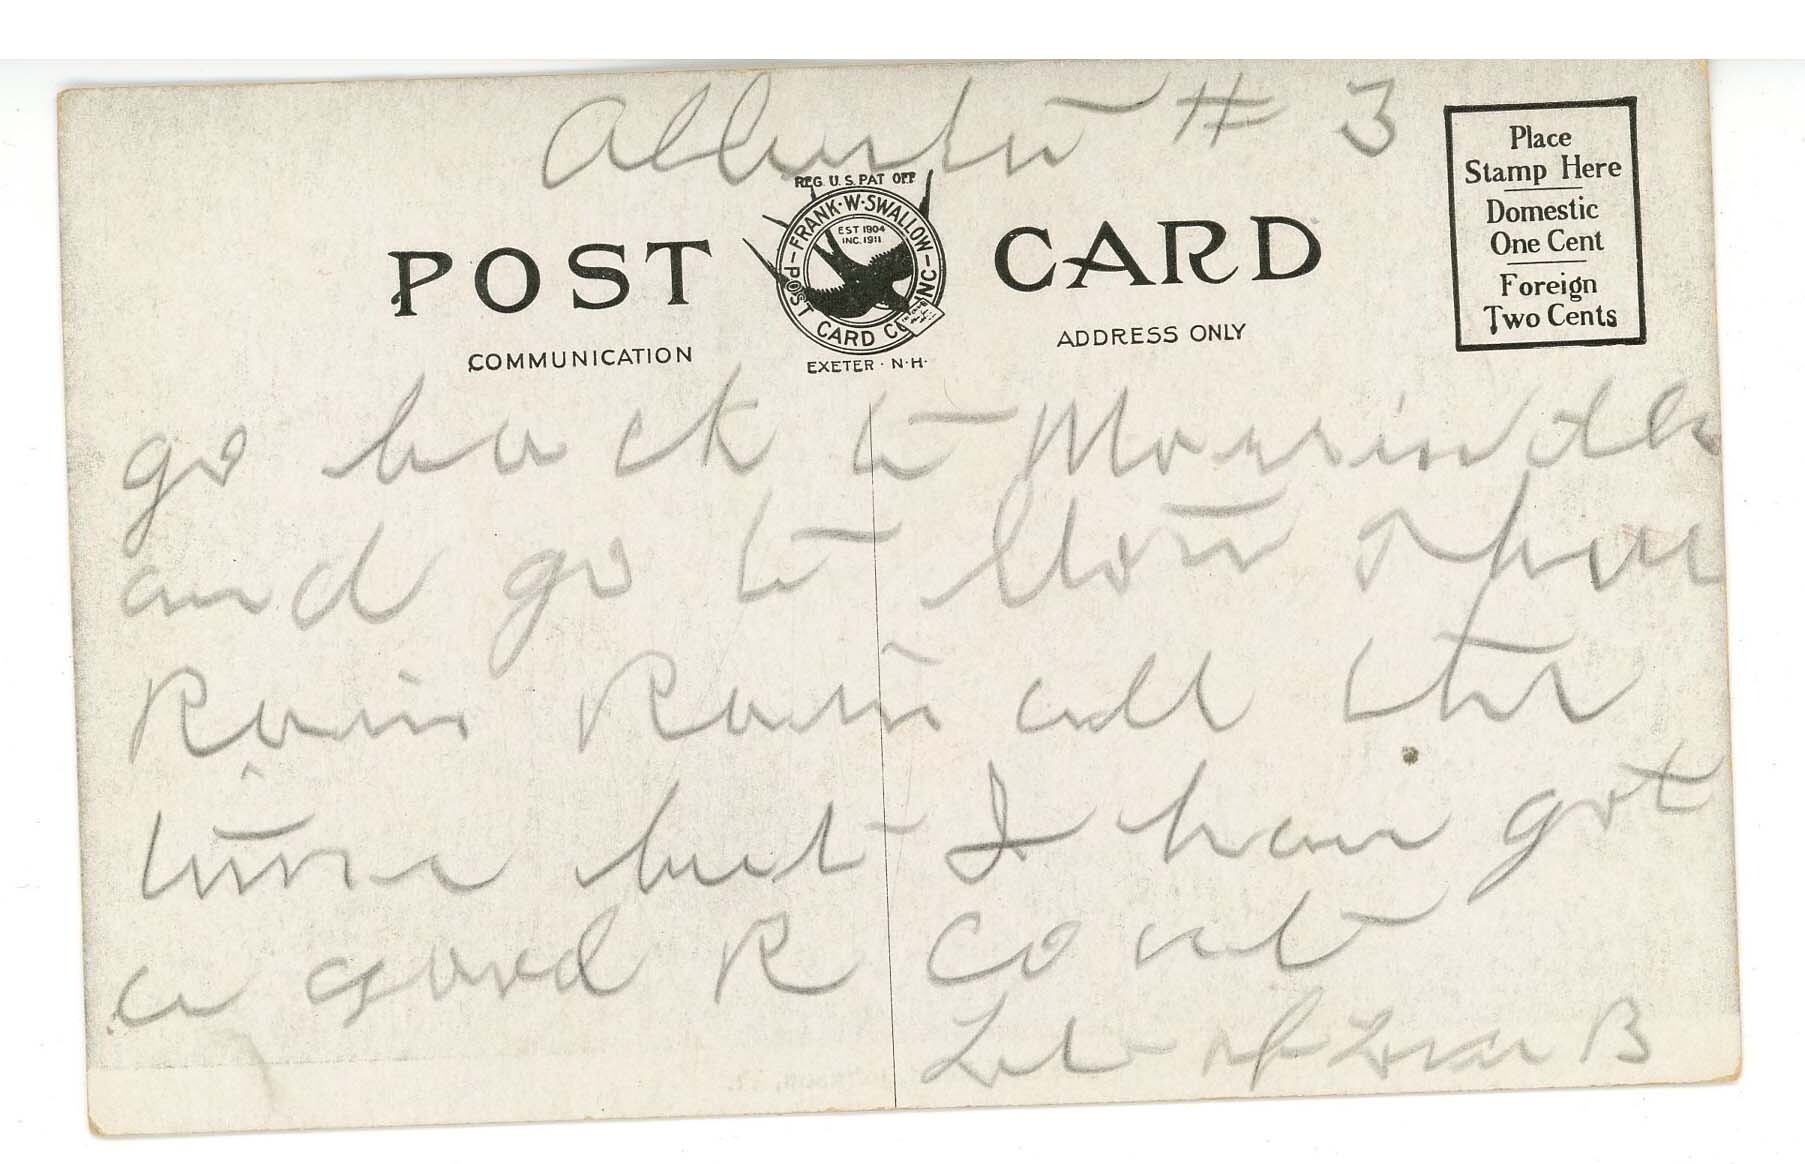 Alberta # 3
REG. U.S. PAT OFF
FRANK·W·SWALLOW
POST CARD CO. INC
EST 1904
INC. 1911
POST CARD
EXETER · N·H·
COMMUNICATION
ADDRESS ONLY
Place
Stamp Here
Domestic
One Cent
Foreign
Two Cents
go back to
and go to
Rain Rain all the
time but I have got
a good R Coat
Lots of Love B